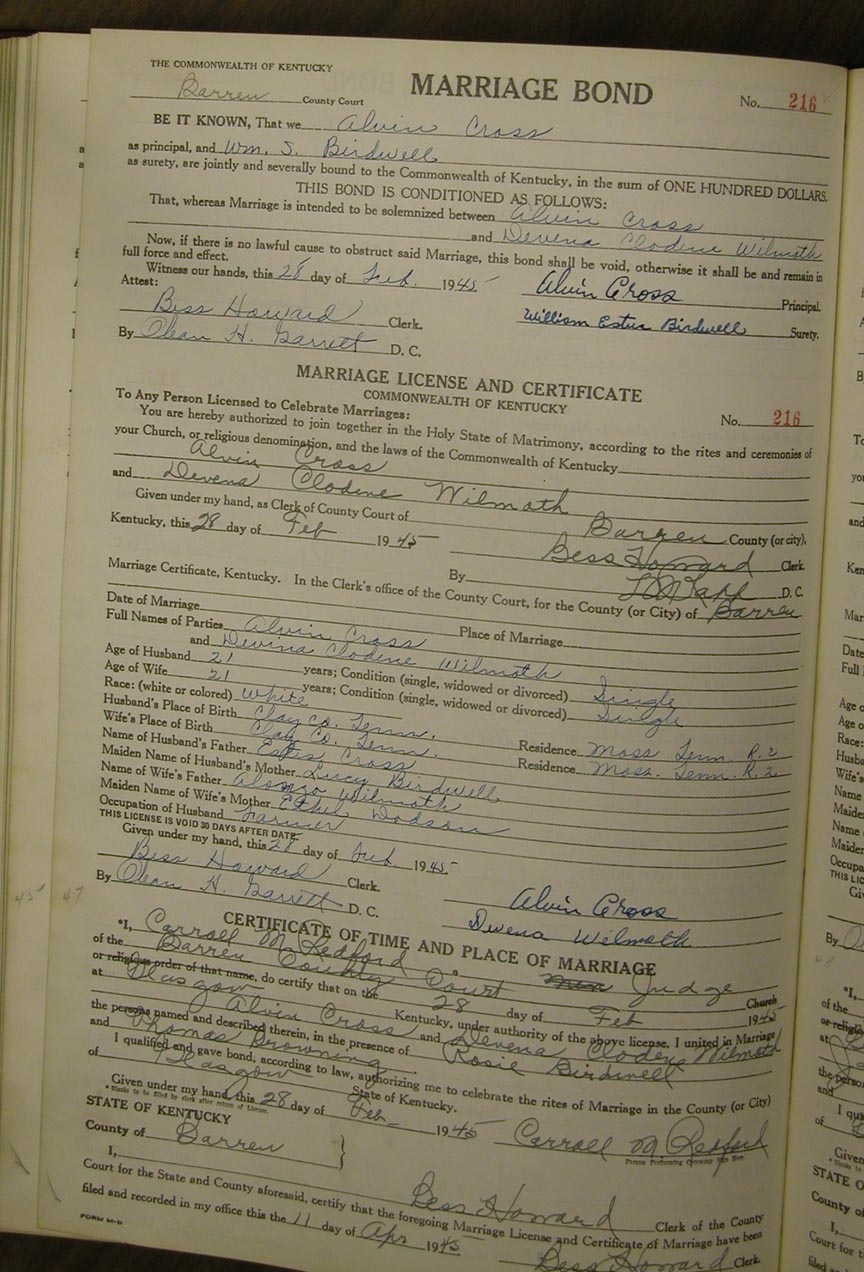 THE COMMONWEALTH OF KENTUCKY
MARRIAGE BOND
Barren County Court No. 216
BE IT KNOWN, That we Alvin Cross
as principal, and Wm. S. Birdwell
as surety, are jointly and severally bound to the Commonwealth of Kentucky, in the sum of ONE HUNDRED DOLLARS.
THIS BOND IS CONDITIONED AS FOLLOWS:
That, whereas Marriage is intended to be solemnized between Alvin Cross
and Devena Clodene Wilmoth
Now, if there is no lawful cause to obstruct said Marriage, this bond shall be void, otherwise it shall be and remain in
full force and effect.
Witness our hands, this 28 day of Feb. 1945
Alvin Cross Principal.
Attest:
William Estus Birdwell Surety.
Bess Howard Clerk.
By Clean H. Barrett D. C.
MARRIAGE LICENSE AND CERTIFICATE
COMMONWEALTH OF KENTUCKY
No. 216
To Any Person Licensed to Celebrate Marriages:
You are hereby authorized to join together in the Holy State of Matrimony, according to the rites and ceremonies of
your Church, or religious denomination, and the laws of the Commonwealth of Kentucky
Alvin Cross
and Devena Clodene Wilmoth
Given under my hand, as Clerk of County Court of Barren County (or city),
Kentucky, this 28 day of Feb 1945 Bess Howard Clerk.
By D. C.
Marriage Certificate, Kentucky. In the Clerk's office of the County Court, for the County (or City) of Barren
Date of Marriage Place of Marriage
Full Names of Parties Alvin Cross
and Devina Clodene Wilmoth
Age of Husband 21 years; Condition (single, widowed or divorced) Single
Age of Wife 21 years; Condition (single, widowed or divorced) Single
Race: (white or colored) White
Husband's Place of Birth Clay Co. Tenn. Residence Moss Tenn. R. 2
Wife's Place of Birth Clay Co. Tenn. Residence Moss. Tenn. R. 2
Name of Husband's Father Estes Cross
Maiden Name of Husband's Mother Lucy Birdwell
Name of Wife's Father Alonzo Wilmoth
Maiden Name of Wife's Mother Ethel Dodson
Occupation of Husband Farmer
THIS LICENSE IS VOID 30 DAYS AFTER DATE.
Given under my hand, this 28 day of Feb 1945
Bess Howard Clerk.
By Clean H. Barrett D. C.
Alvin Cross
Devena Wilmoth
CERTIFICATE OF TIME AND PLACE OF MARRIAGE
*I, Carroll M. Redford a Judge
of the Barren County Court Church
or religious order of that name, do certify that on the 28 day of Feb 1945
at Glasgow Kentucky, under authority of the above license, I united in Marriage
Alvin Cross and Devena Clodene Wilmoth
the persons named and described therein, in the presence of Rosie Birdwell
and Thomas Browning
I qualified and gave bond, according to law, authorizing me to celebrate the rites of Marriage in the County (or City)
of Glasgow State of Kentucky.
Given under my hand, this 28 day of Feb 1945 Carroll M Redford
* Blanks to be filled by clerk after return of License.
Person Performing Ceremony Sign Here.
STATE OF KENTUCKY
County of Barren
I, Bess Howard Clerk of the County
Court for the State and County aforesaid, certify that the foregoing Marriage License and Certificate of Marriage have been
filed and recorded in my office this the 11 day of Apr 1945
Bess Howard Clerk.
FORM M-B